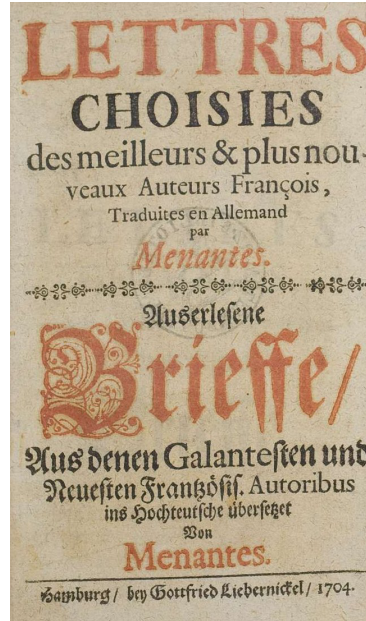 LETTRES
CHOISIES
des meilleurs & plus nou-
veaux Auteurs François,
Traduites en Allemand
par
Menantes.
Auserlesene
Brieffe/
Aus denen Galantesten und
Neuesten Frantzösis. Autoribus
ins Hochteutsche übersetzet
Von
Menantes.
Hamburg/ bey Gottfried Liebernickel/ 1704.